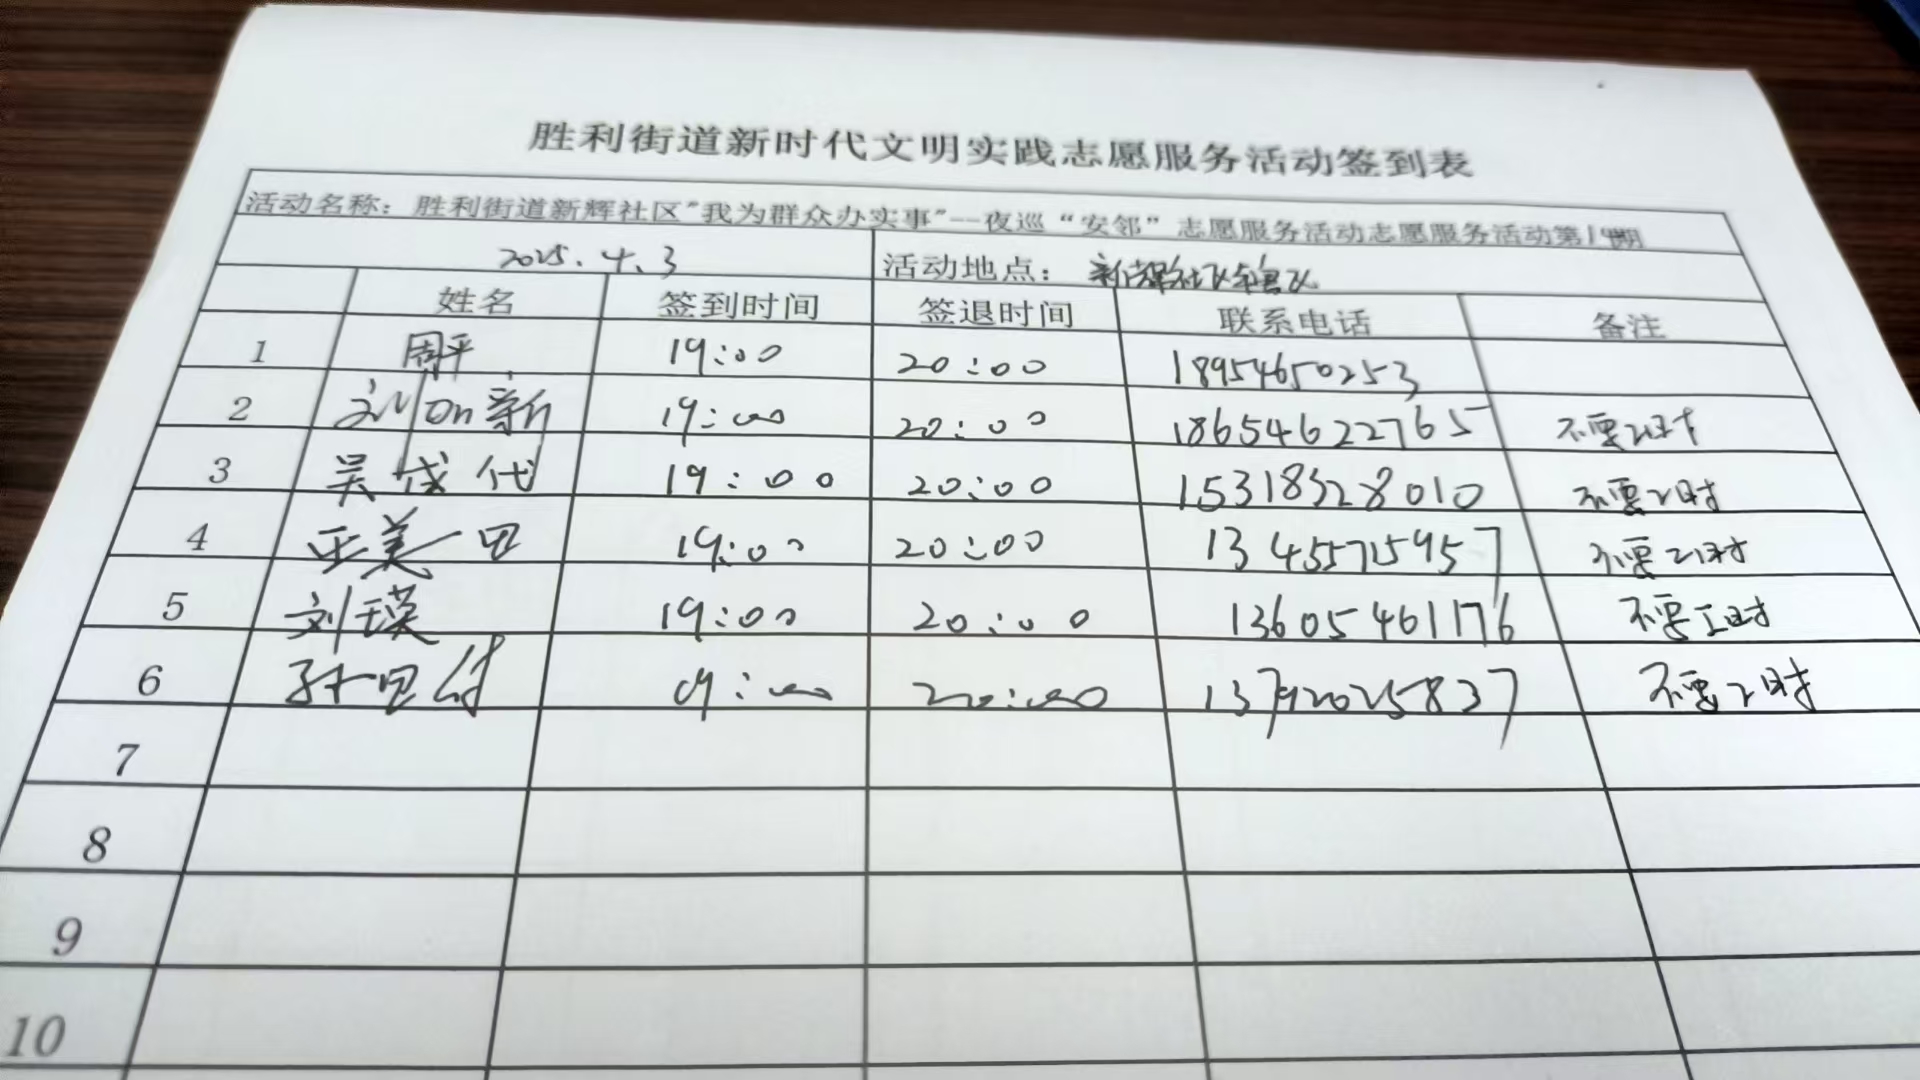 胜利街道新时代文明实践志愿服务活动签到表
活动名称：胜利街道新辉社区"我为群众办实事"--夜巡“安邻”志愿服务活动志愿服务活动第19期
2025.4.3 活动地点：新辉社区辖区
姓名 签到时间 签退时间 联系电话 备注
1 周平 19:00 20:00 18954650253
2 刘 新 19:00 20:00 18654622765 不要工时
3 吴代 19:00 20:00 15318328010 不要工时
4 王美 19:00 20:00 13455715957 不要工时
5 刘瑛 19:00 20:00 13605461176 不要工时
6 孙 19:00 20:00 13792025837 不要工时
7
8
9
10